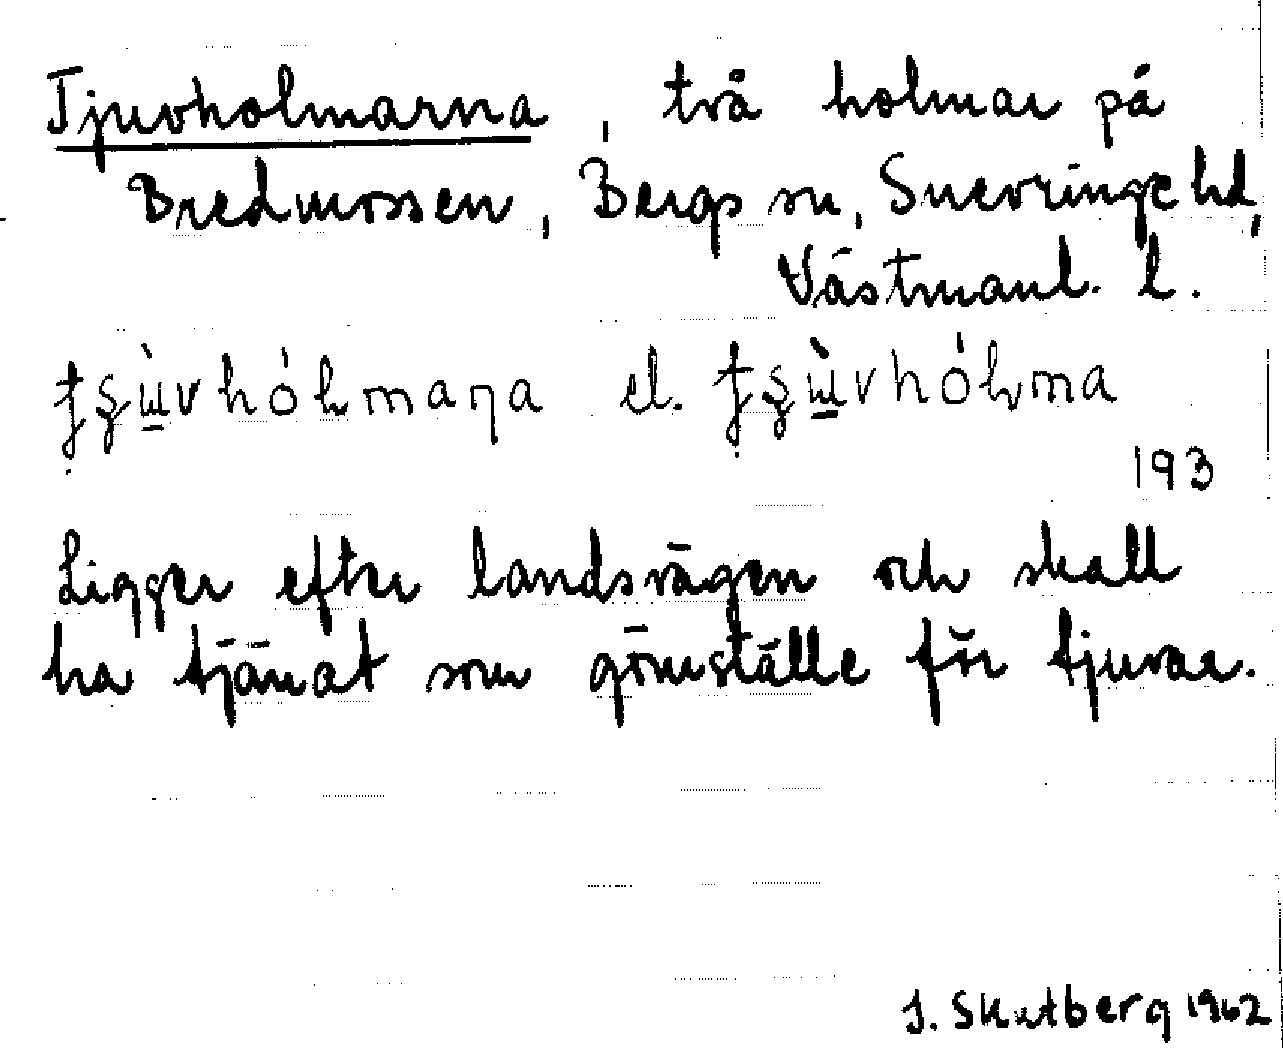 Tjuvholmarna, två holmar på
Bredmossen, Bergs sn, Snevringe hd,
Västmanl. l.
el.
193
Ligger efter landsvägen och skall
ha tjänat som gömställe för tjuvar.
J. Skutberg 1962